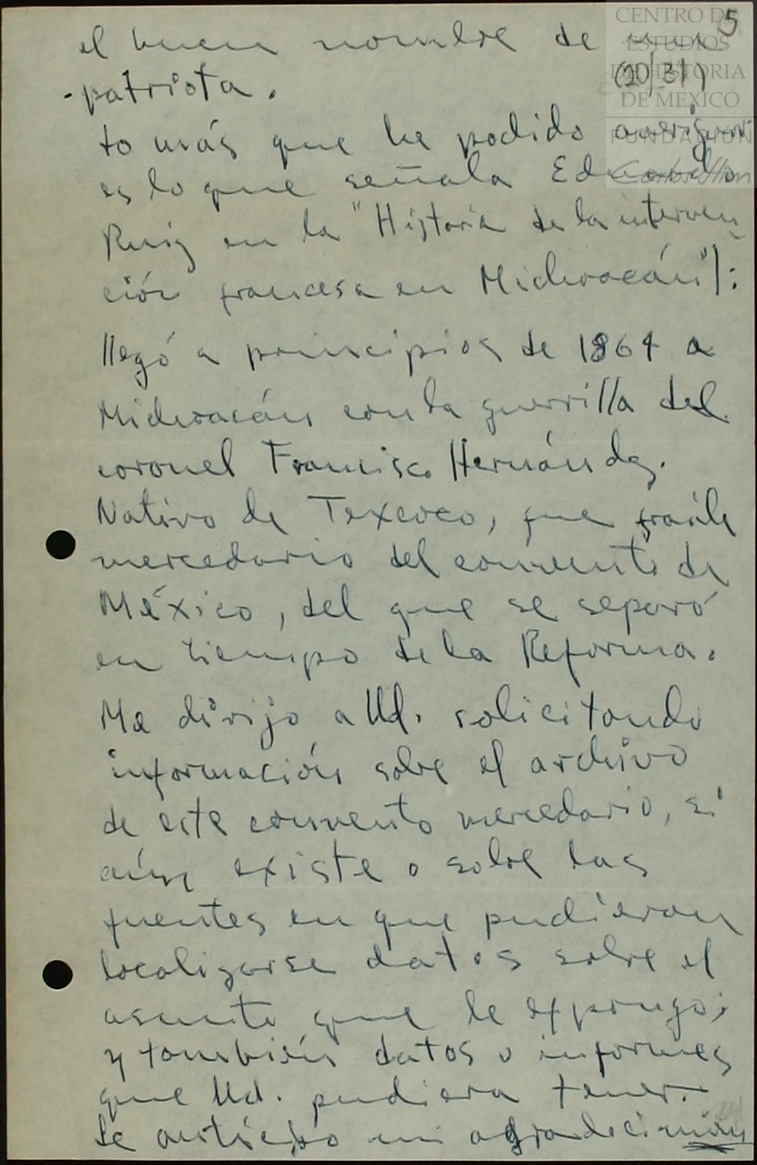 5
(20/31)
CENTRO DE
ESTUDIOS
DE HISTORIA
DE MEXICO
FUNDACIÓN
Carlos Slim
el buen nombre de un
patriota.
Lo más que he podido averiguar
es lo que señala Eduardo
Ruiz en la "Historia de la interven
ción francesa en Michoacán"):
llegó a principios de 1864 a
Michoacán con la guerrilla del
coronel Francisco Hernández.
Nativo de Texcoco, fue fraile
mercedario del convento de
México, del que se separó
en tiempo de la Reforma.
Me dirijo a Ud. solicitando
información sobre el archivo
de este convento mercedario, si
aún existe o sobre las
fuentes en que pudieran
localizarse datos sobre el
asunto que le expongo;
y también datos o informes
que Ud. pudiera tener.
Le anticipo mi agradecimien